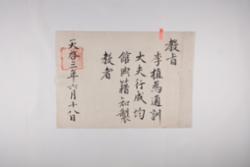 教旨
李植爲通訓
大夫行成均
館典籍知製
教者
天啓三年六月十八日